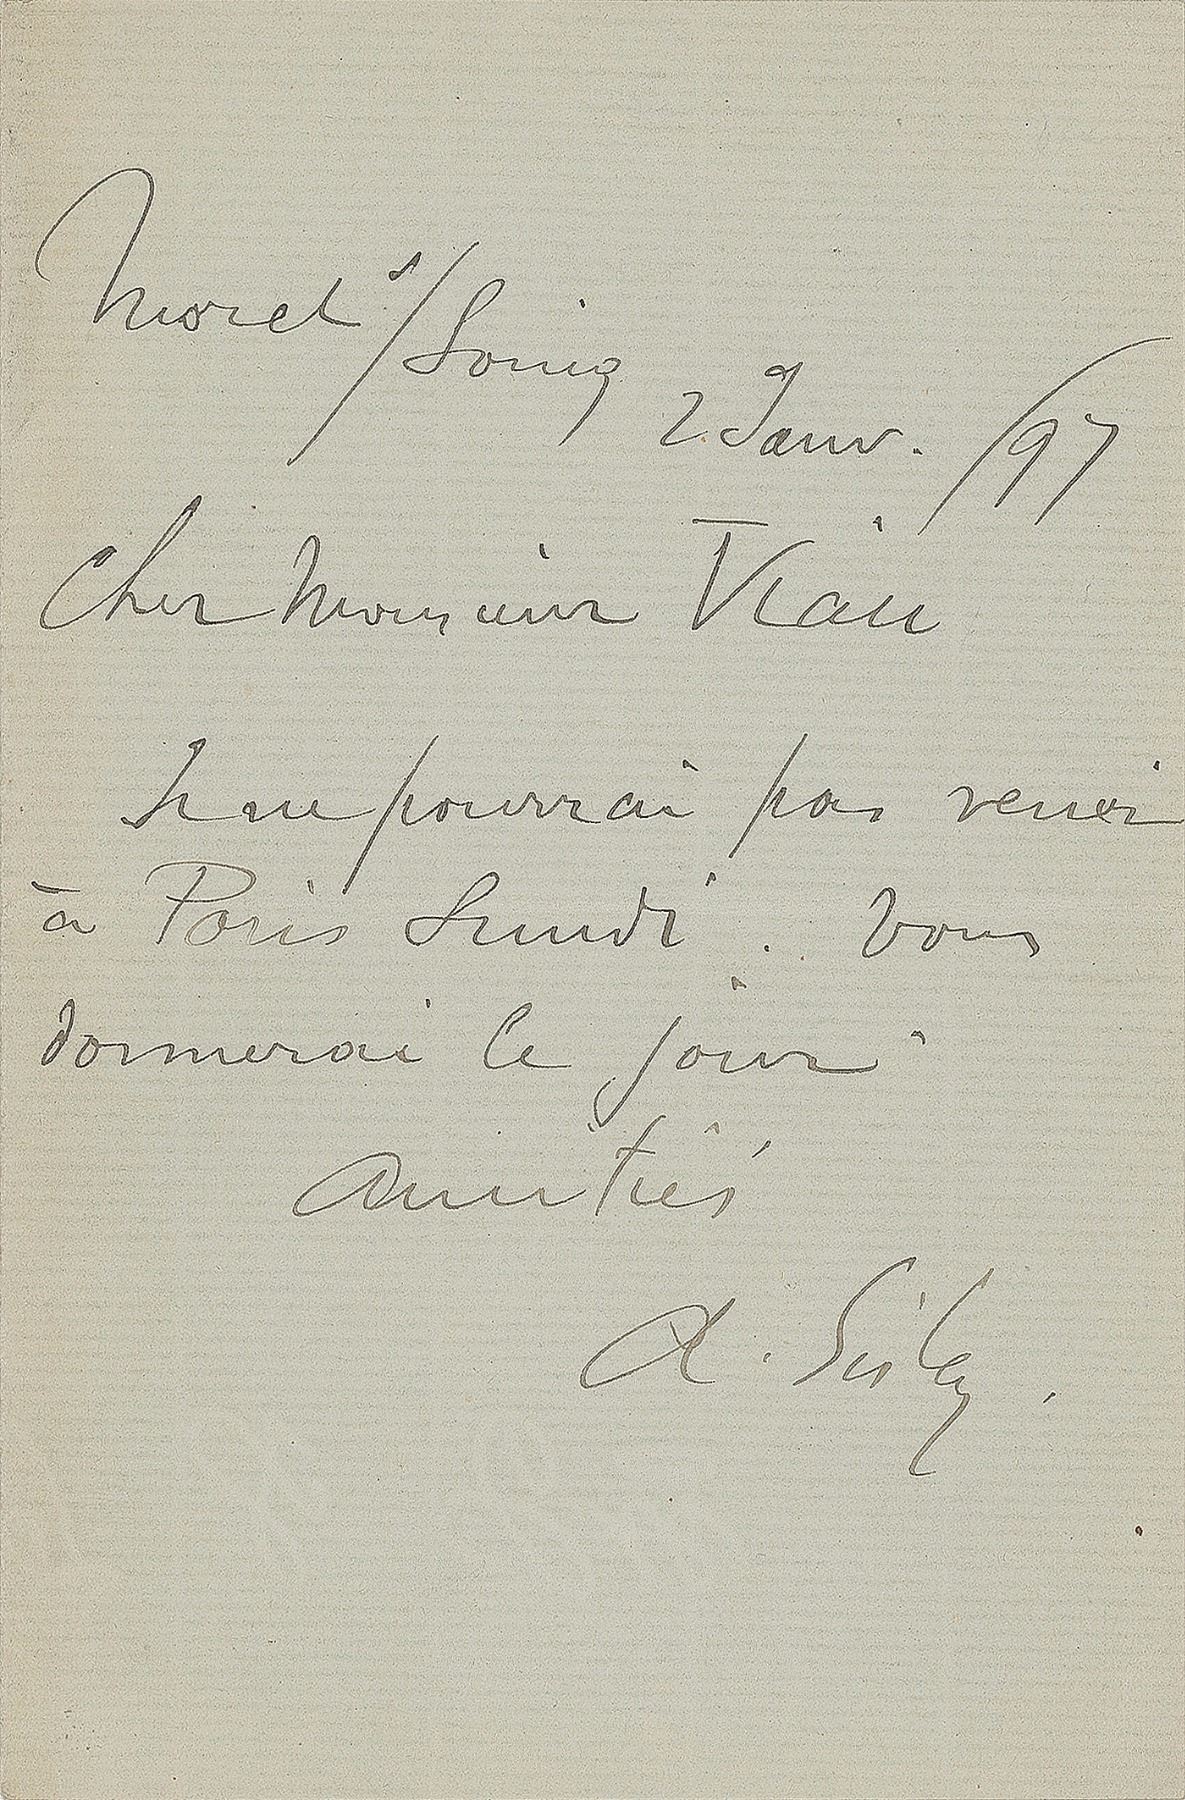 Moret s/Loing 2 Janv. /97
Cher Monsieur Viau
Je ne pourrai pas venir
à Paris Lundi. Vous
donnerai le jour
Amitiés
A. Sisley.